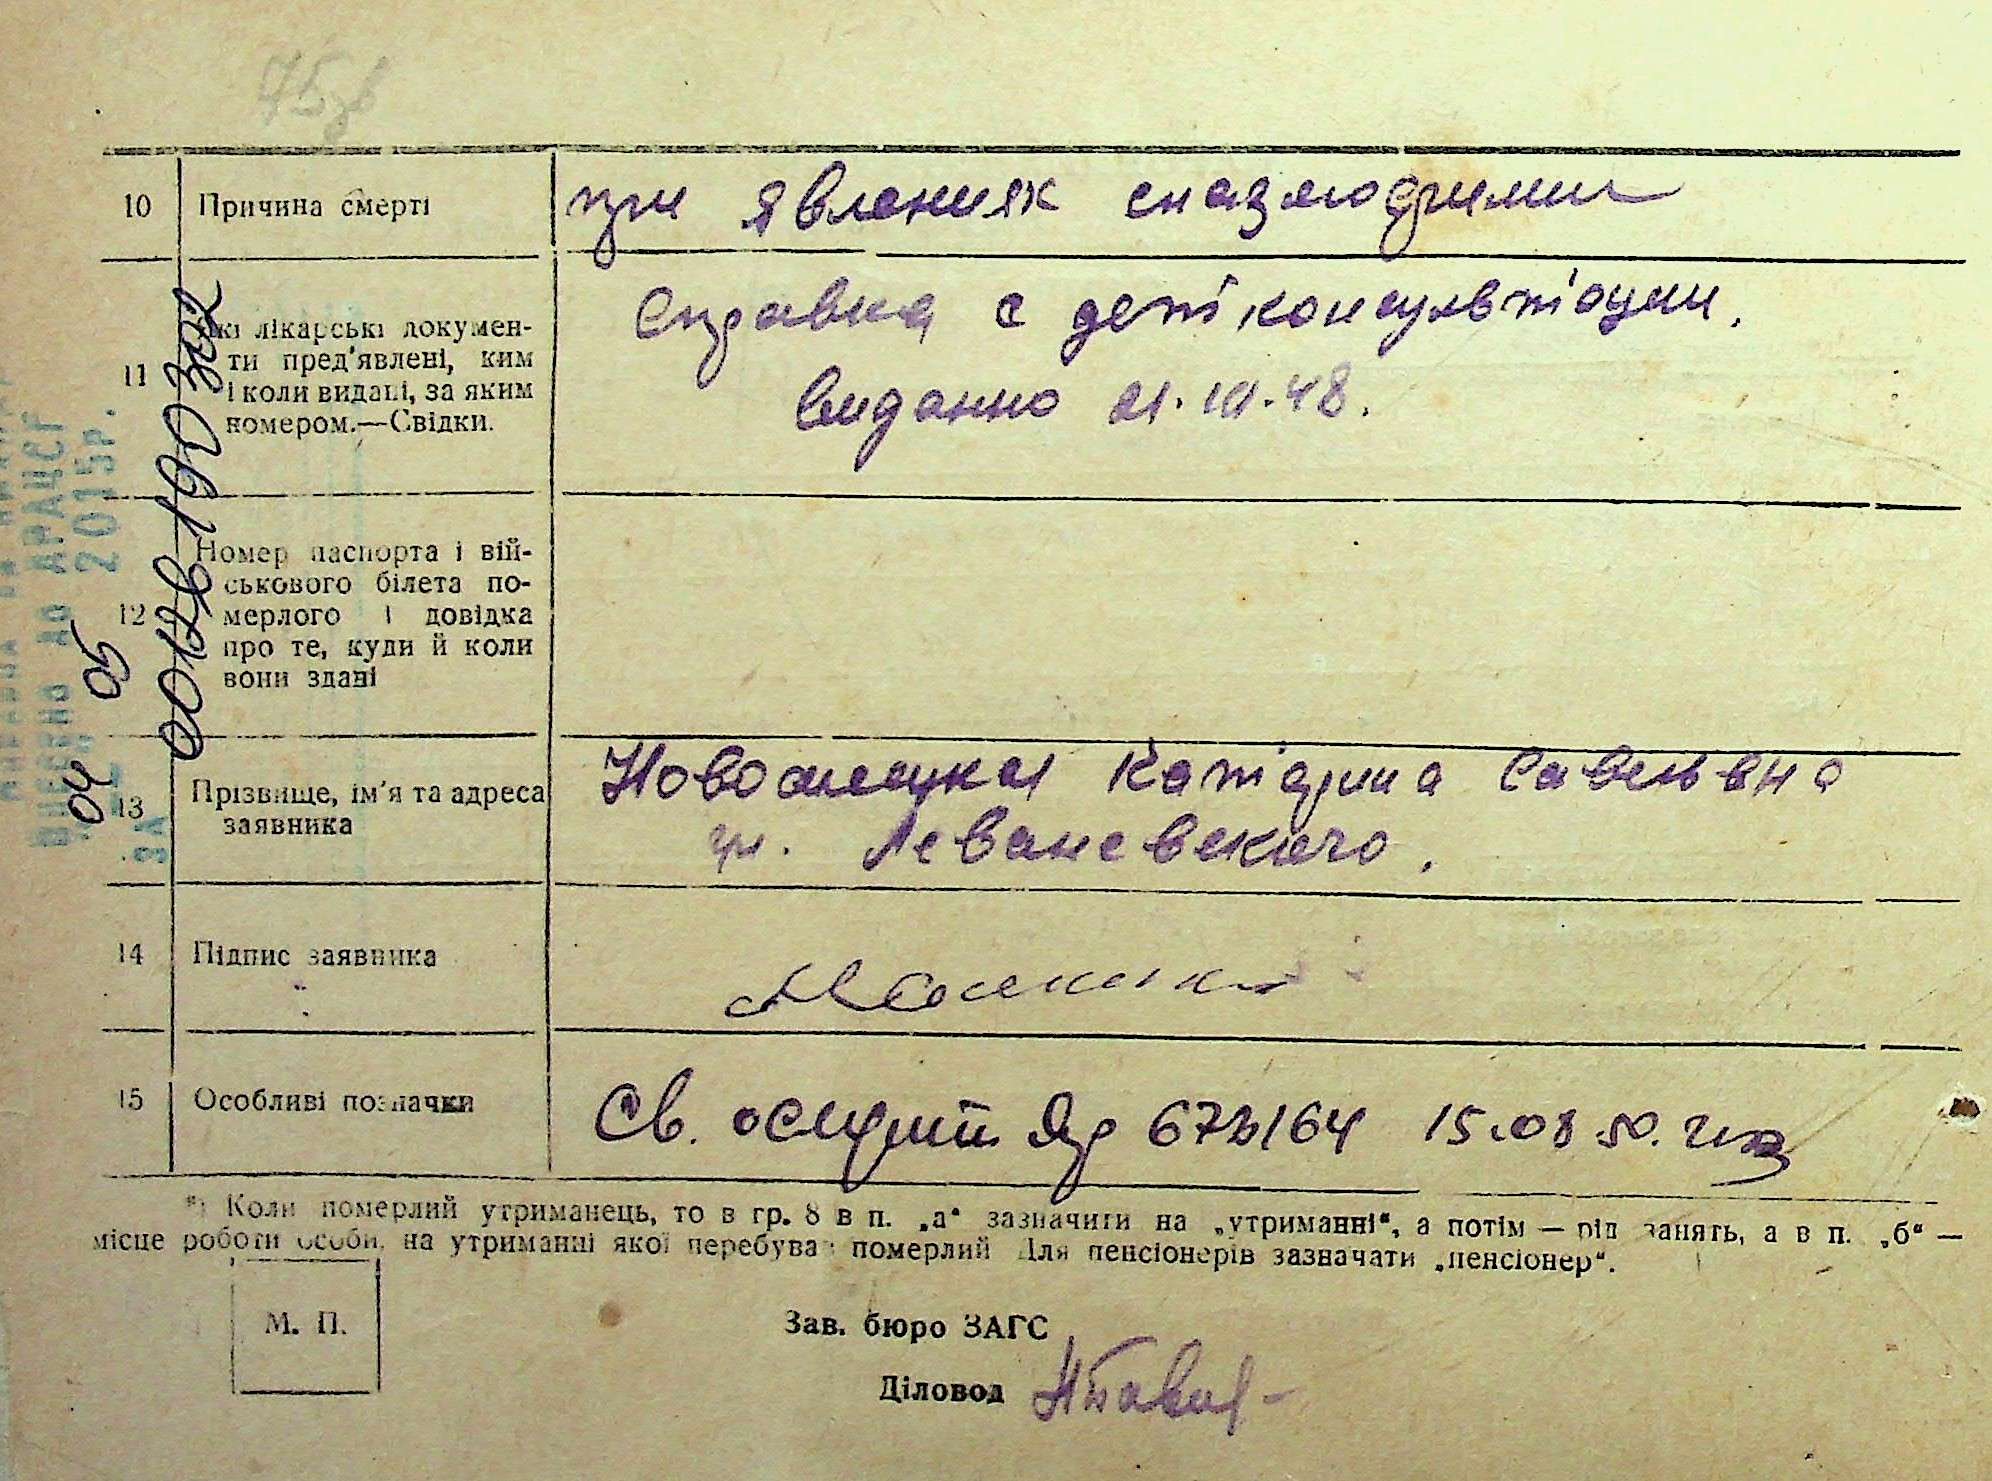 10 Причина смерті
при явлениях спазмофилии
11 Які лікарські докумен-
ти пред'явлені, ким
і коли видані, за яким
номером.—Свідки.
Справка с дет консультации.
выданно 21.III.48.
12 Номер паспорта і вій-
ськового білета по-
мерлого і довідка
про те, куди й коли
вони здані
13 Прізвище, ім'я та адреса
заявника
Катарина Савельвна
ул. Леваневского.
14 Підпис заявника
15 Особливі позначки
Св. 15.08.50.
*) Коли померлий утриманець, то в гр. 8 в п. „а“ зазначити на „утриманні“, а потім — рід занять, а в п. „б“ —
місце роботи особи, на утриманні якої перебував померлий Для пенсіонерів зазначати „пенсіонер“.
М. П.
Зав. бюро ЗАГС
Діловод
ДРАЦСГ
2015р.
04 05
00128190302